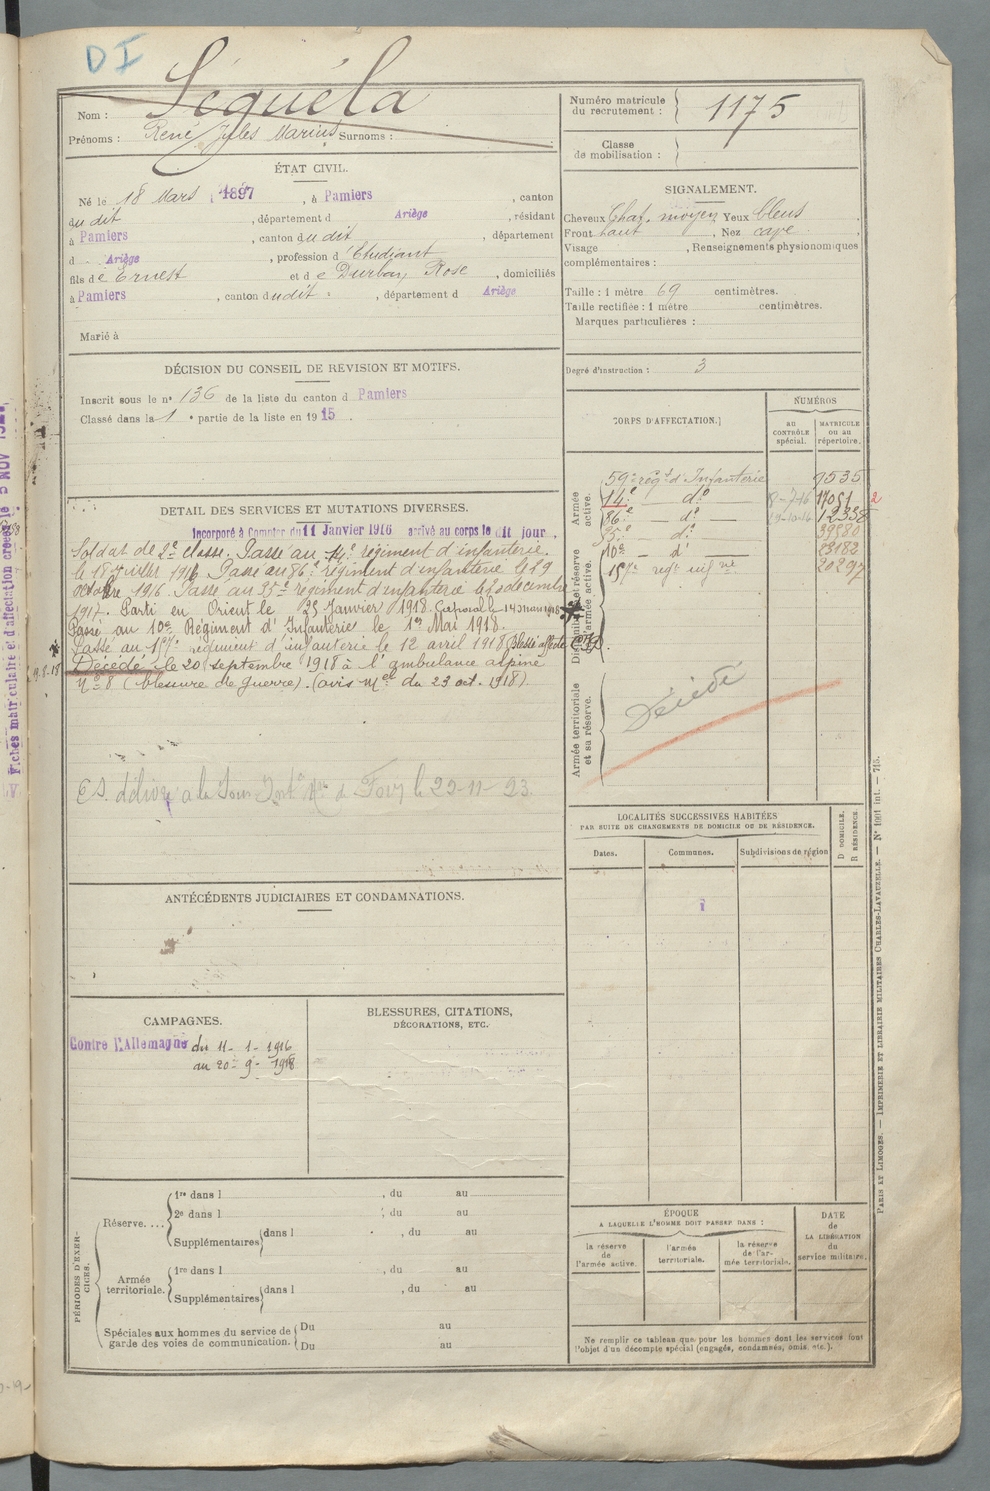 DI
Nom : Séguéla
Prénoms : René Jules Marius Surnoms :
Numéro matricule du recrutement : 1175
Classe de mobilisation :
ÉTAT CIVIL.
Né le 18 Mars 1897, à Pamiers, canton
du dit, département d Ariège, résidant
à Pamiers, canton du dit, département
d Ariège, profession d'Etudiant
fils de Ernest et de Durban, Rose, domiciliés
à Pamiers, canton dudit, département d Ariège
Marié à
SIGNALEMENT.
Cheveux Chat. moyen Yeux bleus
Front haut, Nez cave.
Visage , Renseignements physionomiques
complémentaires :
Taille : 1 mètre 69 centimètres.
Taille rectifiée : 1 mètre centimètres.
Marques particulières :
Degré d'instruction : 3
DÉCISION DU CONSEIL DE RÉVISION ET MOTIFS.
Inscrit sous le n° 136 de la liste du canton d Pamiers
Classé dans la 1e partie de la liste en 1915.
DÉTAIL DES SERVICES ET MUTATIONS DIVERSES.
Incorporé à Compter du 11 Janvier 1916 arrivé au corps le dit jour.
Soldat de 2e classe. Passé au 14e régiment d'infanterie
le 18 Juillet 1916. Passé au 86e régiment d'infanterie le 29
octobre 1916. Passé au 35me régiment d'infanterie le
décembre
1917. Parti en Orient le 25 Janvier 1918. Caporal le 14 mars 1918
Passé au 10e Régiment d'Infanterie le 1er Mai 1918.
Passé au régiment d'infanterie le 12 avril 1918
Décédé le 20 septembre 1918 à l'ambulance alpine
No 8 (blessure de guerre). (avis Mel du 23 oct. 1918).
le 23-11-23.
CORPS D'AFFECTATION.
NUMÉROS
AU CONTRÔLE spécial.
MATRICULE OU AU répertoire.
Armée active.
59e régt d'Infanterie 9535
14e do 8-7-16
86e do 12338
35e do
10e do 23182
20297
Disponibilité et réserve de l'armée active.
Armée territoriale et sa réserve.
Décédé
LOCALITÉS SUCCESSIVES HABITÉES
PAR SUITE DE CHANGEMENTS DE DOMICILE OU DE RÉSIDENCE.
Dates.
Communes.
Subdivisions de région
D DOMICILE.
R RÉSIDENCE.
ANTÉCÉDENTS JUDICIAIRES ET CONDAMNATIONS.
CAMPAGNES.
Contre l'Allemagne du 11-1-1916
au 20-9-1918
BLESSURES, CITATIONS,
DÉCORATIONS, ETC.
PÉRIODES D'EXERCICES.
Réserve....
1re dans l , du au
2e dans l , du au
Supplémentaires dans l , du au
Armée territoriale.
1re dans l , du au
Supplémentaires dans l , du au
Spéciales aux hommes du service de
garde des voies de communication.
Du au
Du au
ÉPOQUE
A LAQUELLE L'HOMME DOIT PASSER DANS :
la réserve de l'armée active.
l'armée territoriale.
la réserve de l'armée territoriale.
DATE de LA LIBÉRATION du service militaire.
Ne remplir ce tableau que pour les hommes dont les services font
l'objet d'un décompte spécial (engagés, condamnés, omis, etc.).
PARIS ET LIMOGES. — IMPRIMERIE ET LIBRAIRIE MILITAIRES CHARLES-LAVAUZELLE. — N° 1001 int. — 715.
Fiches matriculaire et d'affectation créées le 5 NOV